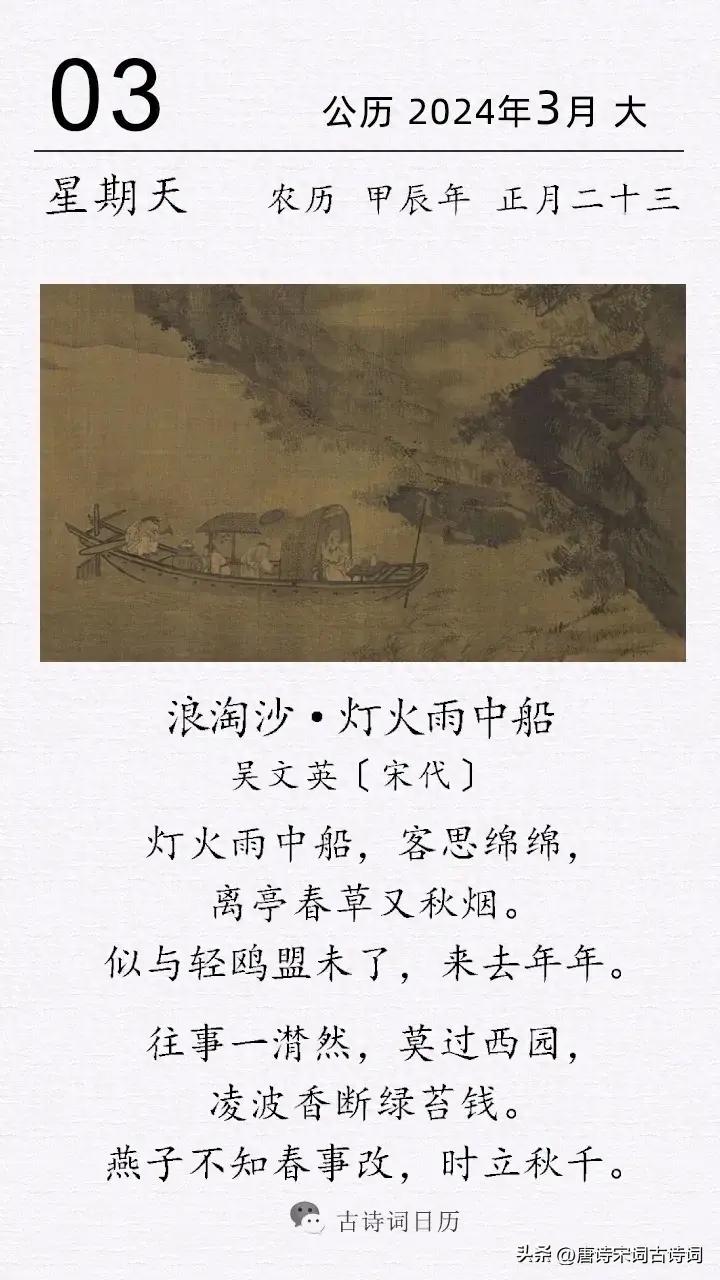 03
公历 2024年3月 大
星期天 农历 甲辰年 正月二十三
浪淘沙·灯火雨中船
吴文英〔宋代〕
灯火雨中船，客思绵绵，
离亭春草又秋烟。
似与轻鸥盟未了，来去年年。
往事一潸然，莫过西园，
凌波香断绿苔钱。
燕子不知春事改，时立秋千。
古诗词日历
头条 @唐诗宋词古诗词